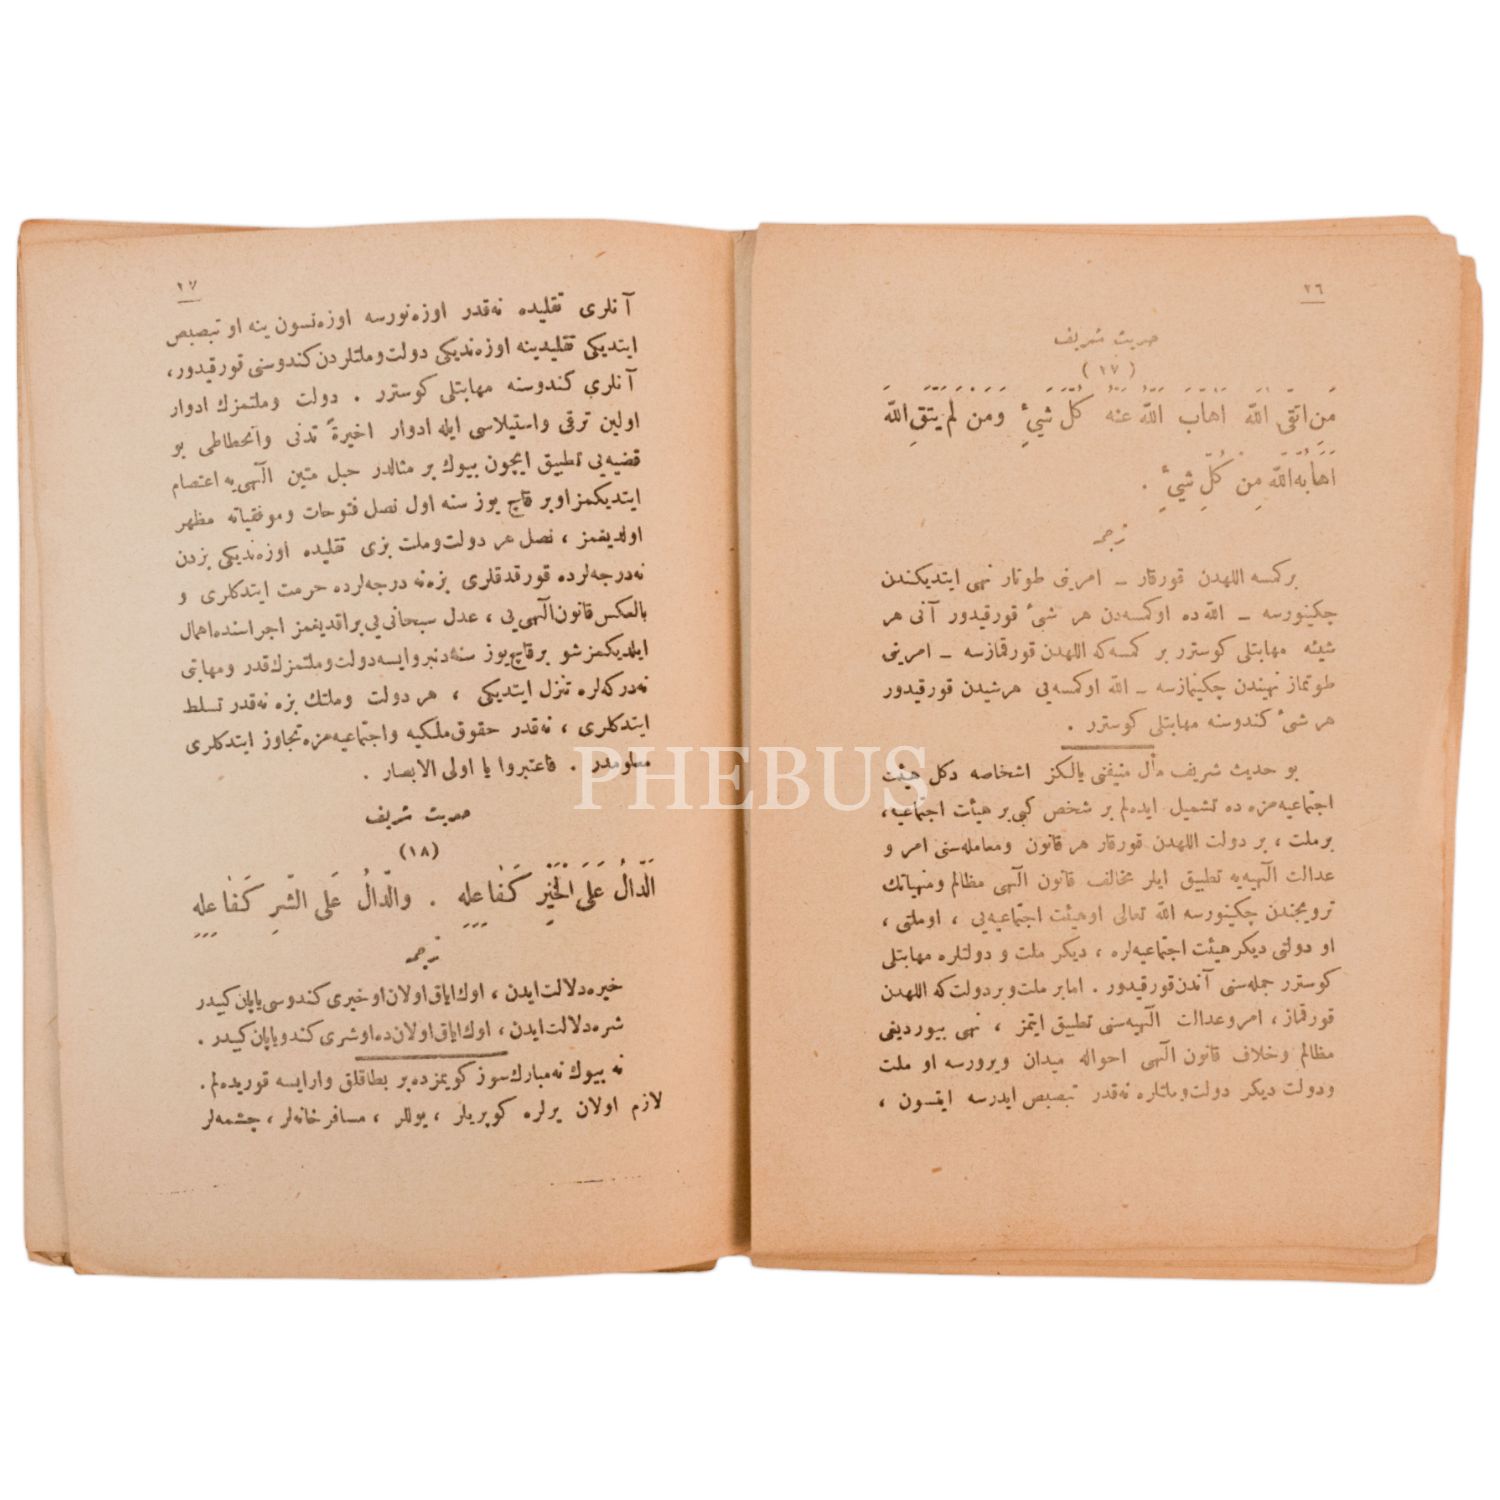 ٢٦
حدیث شریف
(١٧)
مَنِ اتَّقَى اللّهَ اَهَابَ اللّهُ عَنْهُ كُلَّ شَيْئٍ وَمَنْ لَمْ يَتَّقِ اللّهَ
اَهَابَهُ اللّهُ مِنْ كُلِّ شَيْئٍ .
ترجمه
بركمسه اللهدن قورقار ــ امرینی طوتار نهی ایتدیكندن
چكینورسه ــ الله ده اوكمسه‌دن هر شیٔ قورقیدور آنی هر
شیئه مهابتلی كوسترر بر كمسه‌كه اللهدن قورقمازسه ــ امرینی
طوتماز نهیندن چكینمازسه ــ الله اوكمسه‌یی هرشیدن قورقیدور
هر شیٔ كندوسنه مهابتلی كوسترر .
بو حدیث شریف مأل منیفنی یالكز اشخاصه دكل هیئت
اجتماعیه‌مزه ده تشمیل ایده‌لم بر شخص كبی بر هیأت اجتماعیه ،
برملت ، بر دولت اللهدن قورقار هر قانون ومعامله‌سنی امر و
عدالت الٓهیه‌یه تطبیق ایلر مخالف قانون الٓهی مظالم ومنهیاتك
ترویجندن چكینورسه الله تعالی اوهیئت اجتماعیه‌یی ، اوملتی ،
او دولتی دیكر هیئت اجتماعیه‌لره ، دیكر ملت و دولتلره مهابتلی
كوسترر جمله‌سنی آندن قورقیدور . اما بر ملت و بر دولت كه اللهدن
قورقماز ، امر وعدالت الٓهیه‌سنی تطبیق ایتمز ، نهی بیوردینی
مظالم وخلاف قانون الٓهی احواله میدان ویرورسه او ملت
ودولت دیكر دولت‌وملتلره نه‌قدر تبصبص ایدرسه ایتسون ،
٢٧
آنلری تقلیده نه‌قدر اوزه‌نورسه اوزه‌نسون ینه او تبصبص
ایتدیكی تقلیدینه اوزه‌ندیكی دولت‌وملتلردن كندوسنی قورقیدور،
آنلری كندوسنه مهابتلی كوسترر . دولت وملتمزك ادوار
اولین ترقی واستیلاسی ایله ادوار اخیرهٔ تدنی وانحطاطی بو
قضیه‌یی تطبیق ایچون بیوك بر مثالدر حبل متین الٓهی‌یه اعتصام
ایتدیكمز اوبر قاچ یوز سنه اول نصل فتوحات وموفقیاته مظهر
اولدیغمز ، نصل هر دولت‌وملت بزی تقلیده اوزه‌ندیكی بزدن
نه‌درجه‌لرده قورقدقلری بزه‌نه درجه‌لرده حرمت ایتدكلری و
بالعكس قانون الٓهی‌یی ، عدل سبحانی‌یی براقدیغمز اجراسنده‌اهمال
ایلدیكمز شو برقاچ یوز سنه‌دنبروایسه دولت‌وملتمزك قدر ومهابتی
نه‌دركه‌لره تنزل ایتدیكی ، هر دولت وملتك بزه نه‌قدر تسلط
ایتدكلری ، نه‌قدر حقوق ملكیه واجتماعیه‌مزه تجاوز ایتدكلری
معلومدر . فاعتبروا یا اولی الابصار .
حدیث شریف
(١٨)
اَلدَّالُ عَلَى الْخَيْرِ كَفَاعِلِهِ . وَالدَّالُ عَلَى الشَّرِ كَفَاعِلِهِ
ترجمه
خیره دلالت ایدن ، اوك ایاق اولان او خیری كندوسی یاپان كیبدر
شره دلالت ایدن ، اوك ایاق اولان ده او شری كندو یاپان كیبدر .
نه بیوك نه‌مبارك سوز كویمزده بر بطاقلق وارایسه قوریده‌لم .
لازم اولان یرلره كوپریلر ، یوللر ، مسافرخانه‌لر ، چشمه‌لر
PHEBUS